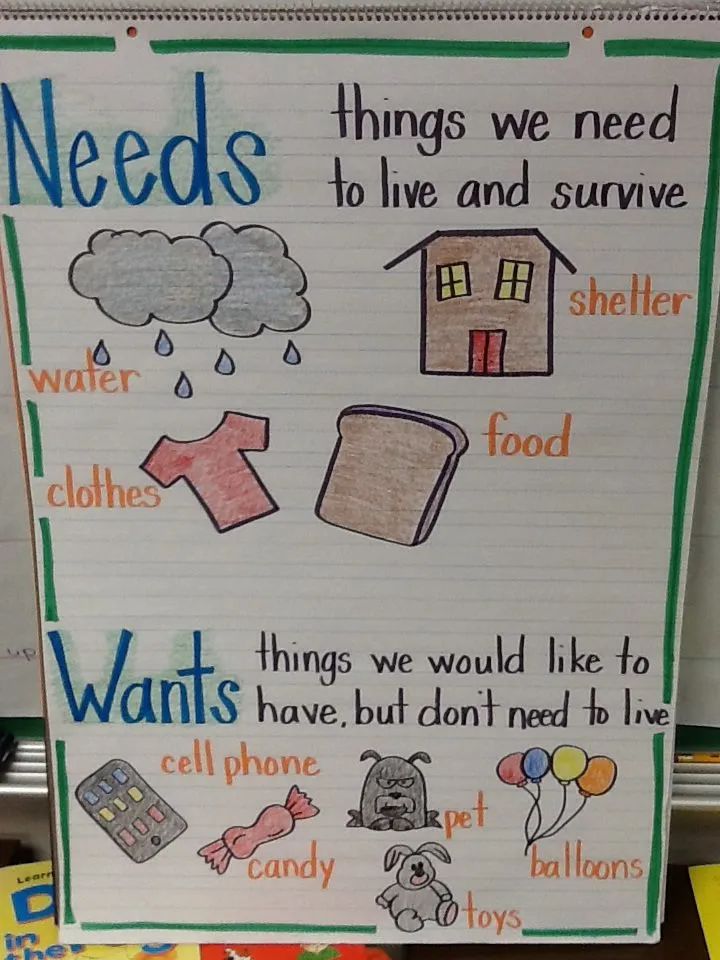 Needs
things we need
to live and survive
shelter
water
food
clothes
Wants
things we would like to
have, but don't need to live
cell phone
pet
candy
balloons
toys
up
Learn
in
the